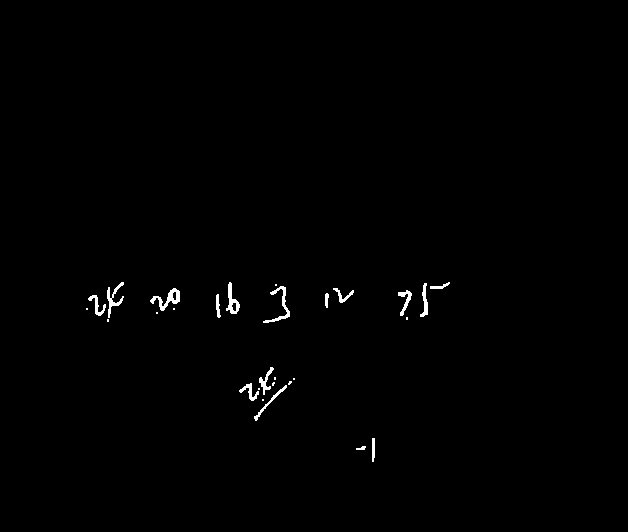 24 20 16 3 12 75
24
-1